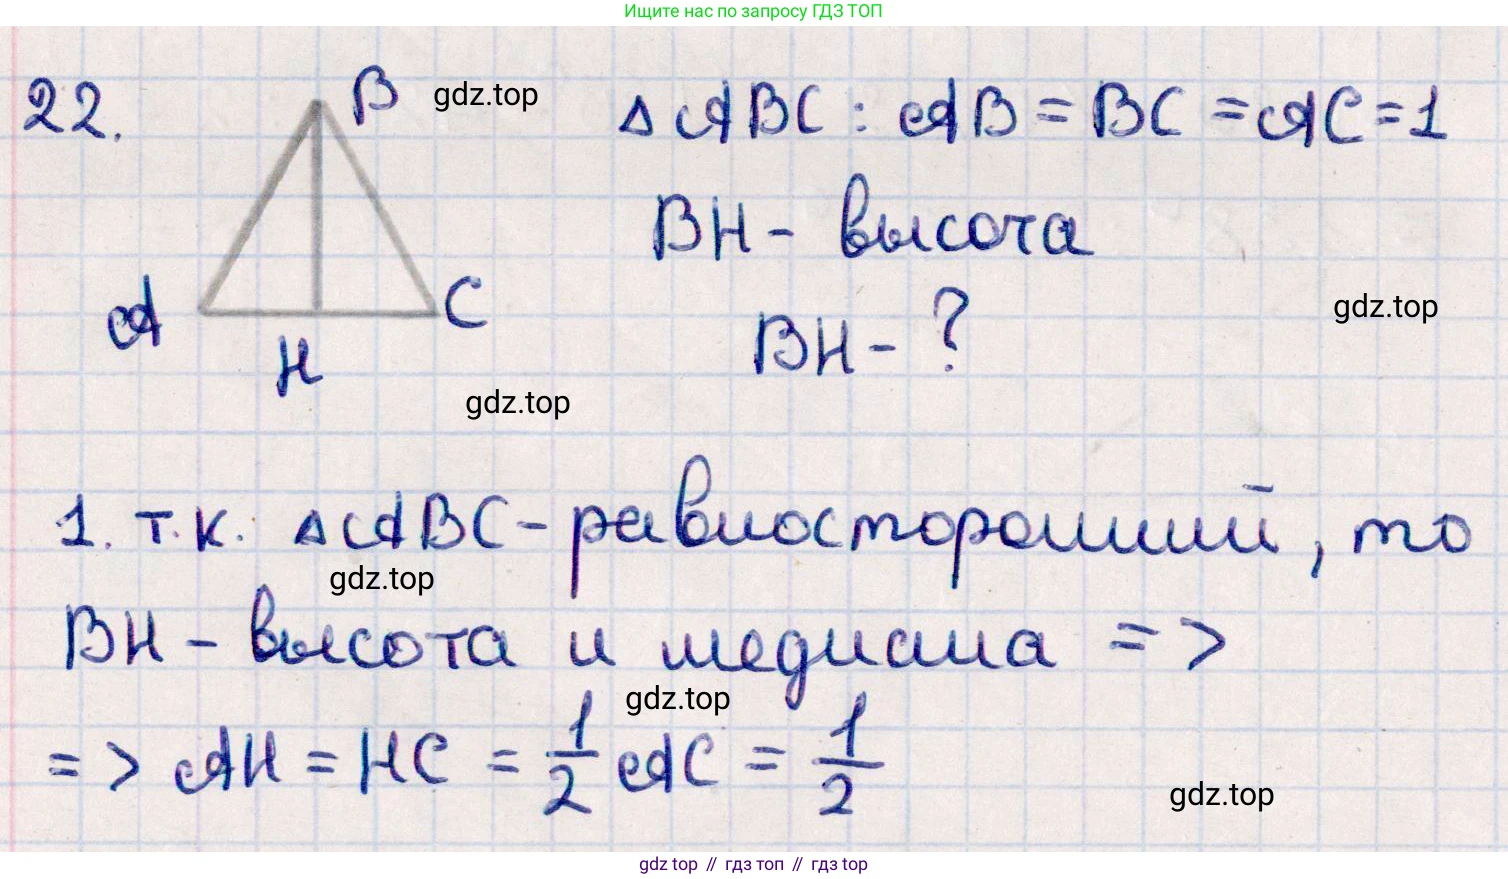 Ищите нас по запросу ГДЗ ТОП
22.
B
gdz.top
△ABC : AB = BC = AC = 1
BH - высота
A
C
gdz.top
H
BH - ?
gdz.top
1. т.к. △ABC - равносторонний, то
gdz.top
BH - высота и медиана =>
gdz.top
=> AH = HC = 1/2 AC = 1/2
gdz.top
gdz top // гдз топ // gdz top